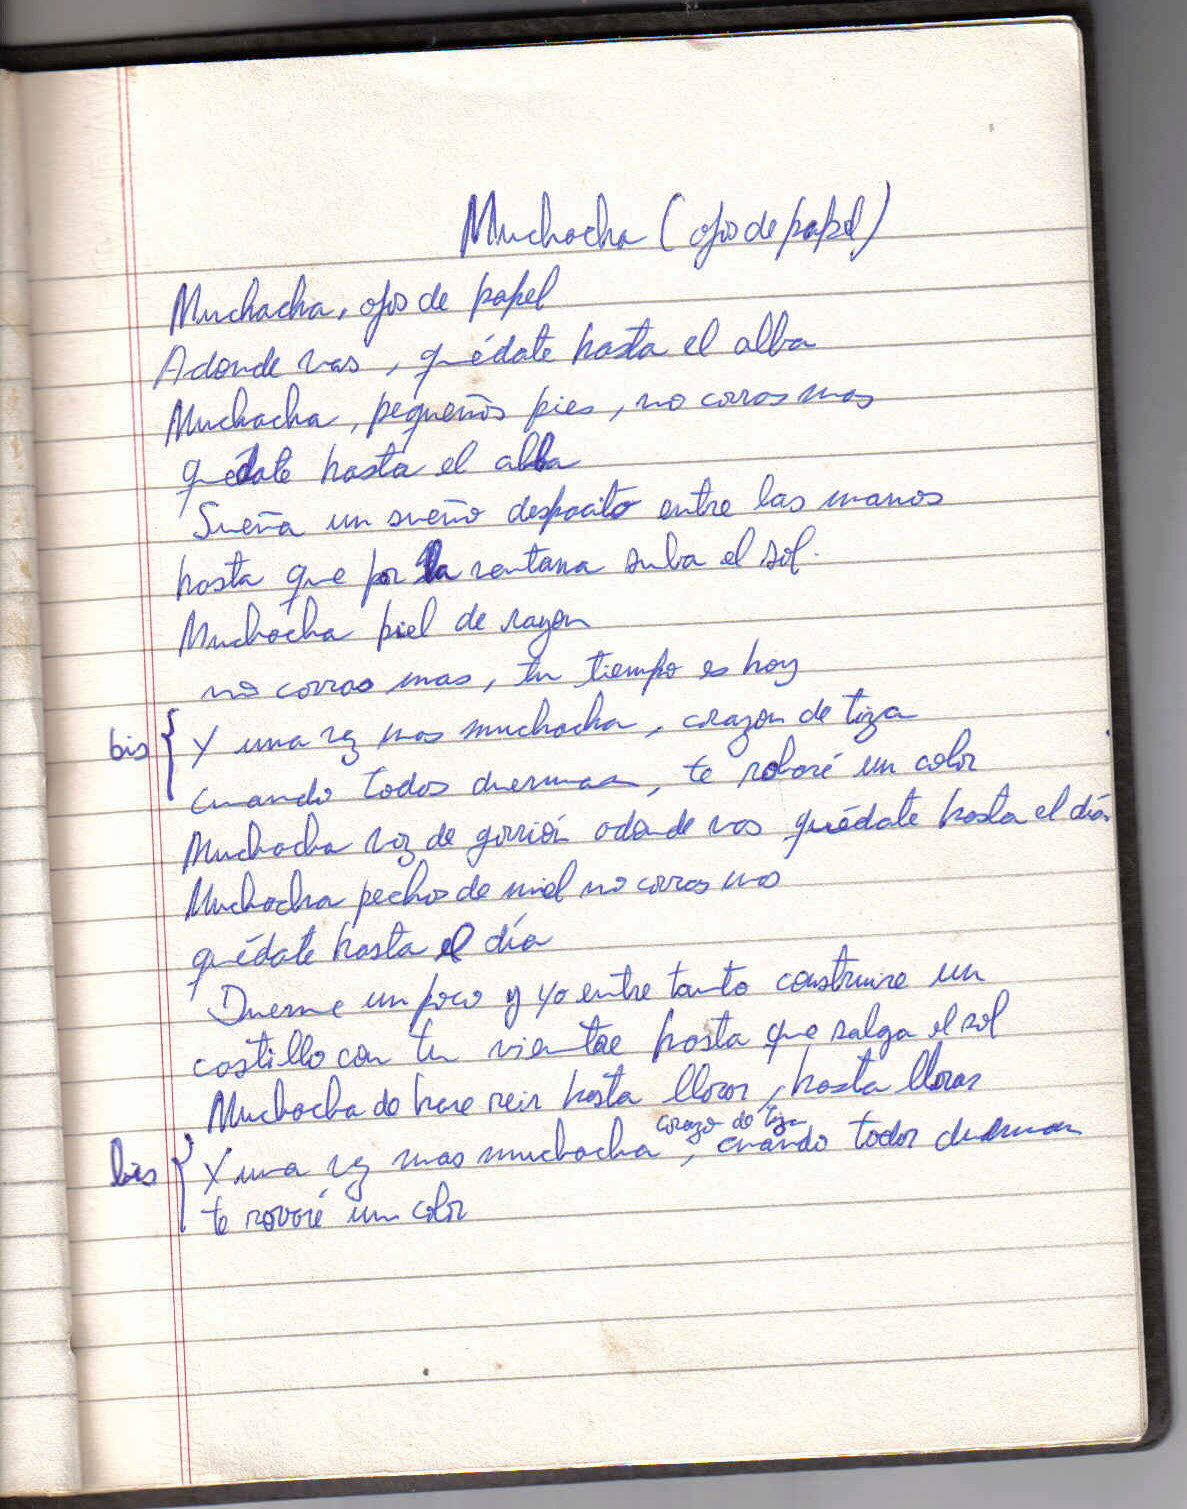 Muchacha (ojos de papel)
Muchacha, ojos de papel
Adonde vas, quédate hasta el alba
Muchacha, pequeños pies, no corras mas
quédate hasta el alba
Sueña un sueño despacito entre las manos
hasta que por la ventana suba el sol.
Muchacha piel de rayon
no corras mas, tu tiempo es hoy
bis { Y una vez mas muchacha, corazon de tiza
cuando todos duerman, te robaré un color
Muchacha voz de gorrión adonde vas quédate hasta el día
Muchacha pechos de miel no corras mas
quédate hasta el día
Duerme un poco y yo entre tanto construire un
castillo con tu vientre hasta que salga el sol
Muchacha de hare reir hasta llorar, hasta llorar
bis { Y una vez mas muchacha, corazo de tiza cuando todos duerman
te rovaré un color